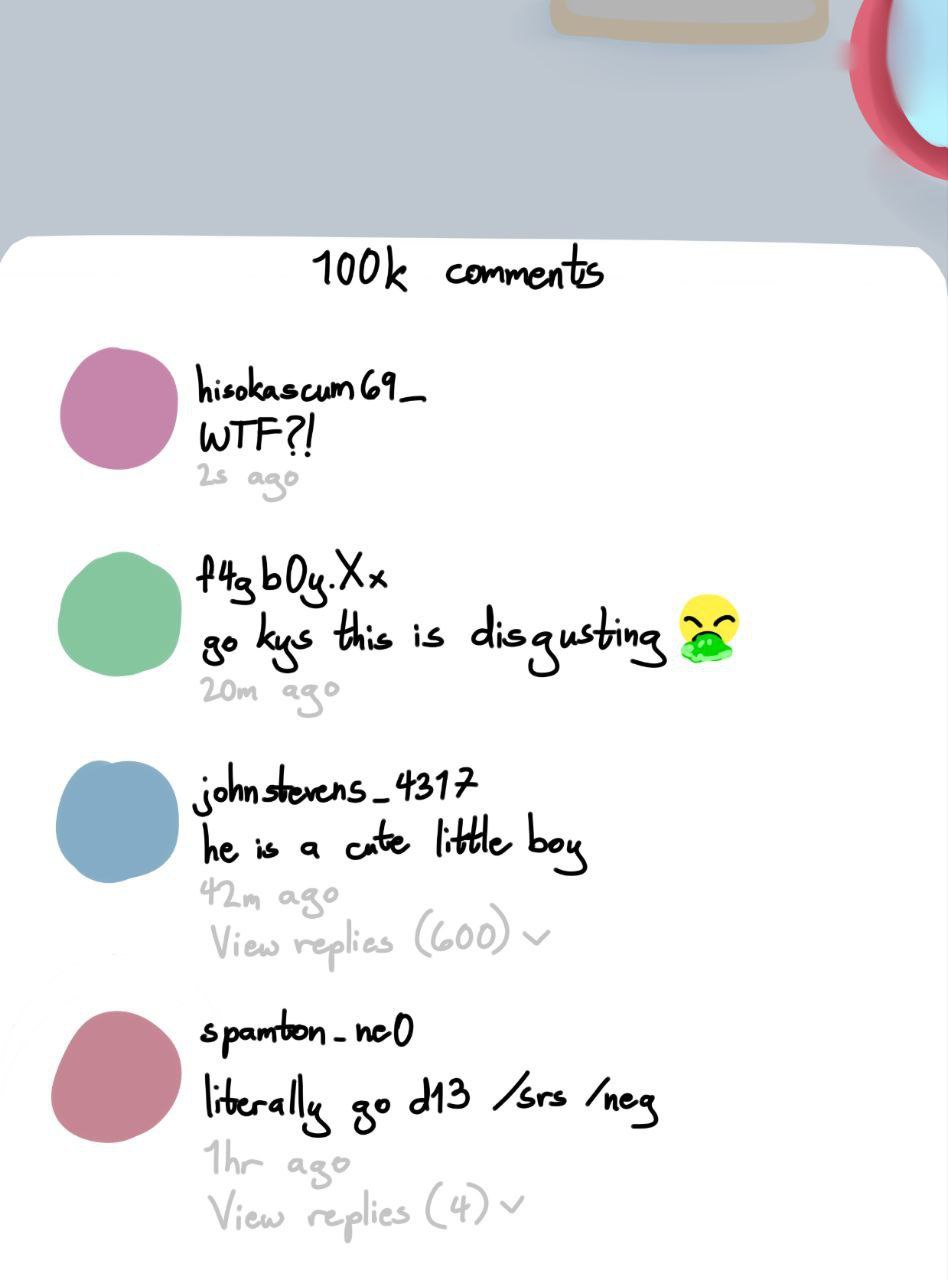 100k comments
hisokascum69_
WTF?!
2s ago
f4gb0y.Xx
go kys this is disgusting
20m ago
johnstevens_4317
he is a cute little boy
42m ago
View replies (600)
spamton_ne0
literally go d13 /srs /neg
1hr ago
View replies (4)